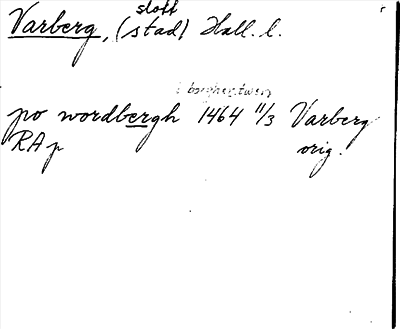 slott
Varberg, (stad) Hall. l.
po wordbergh 1464 11/3 Varberg
RAp orig.